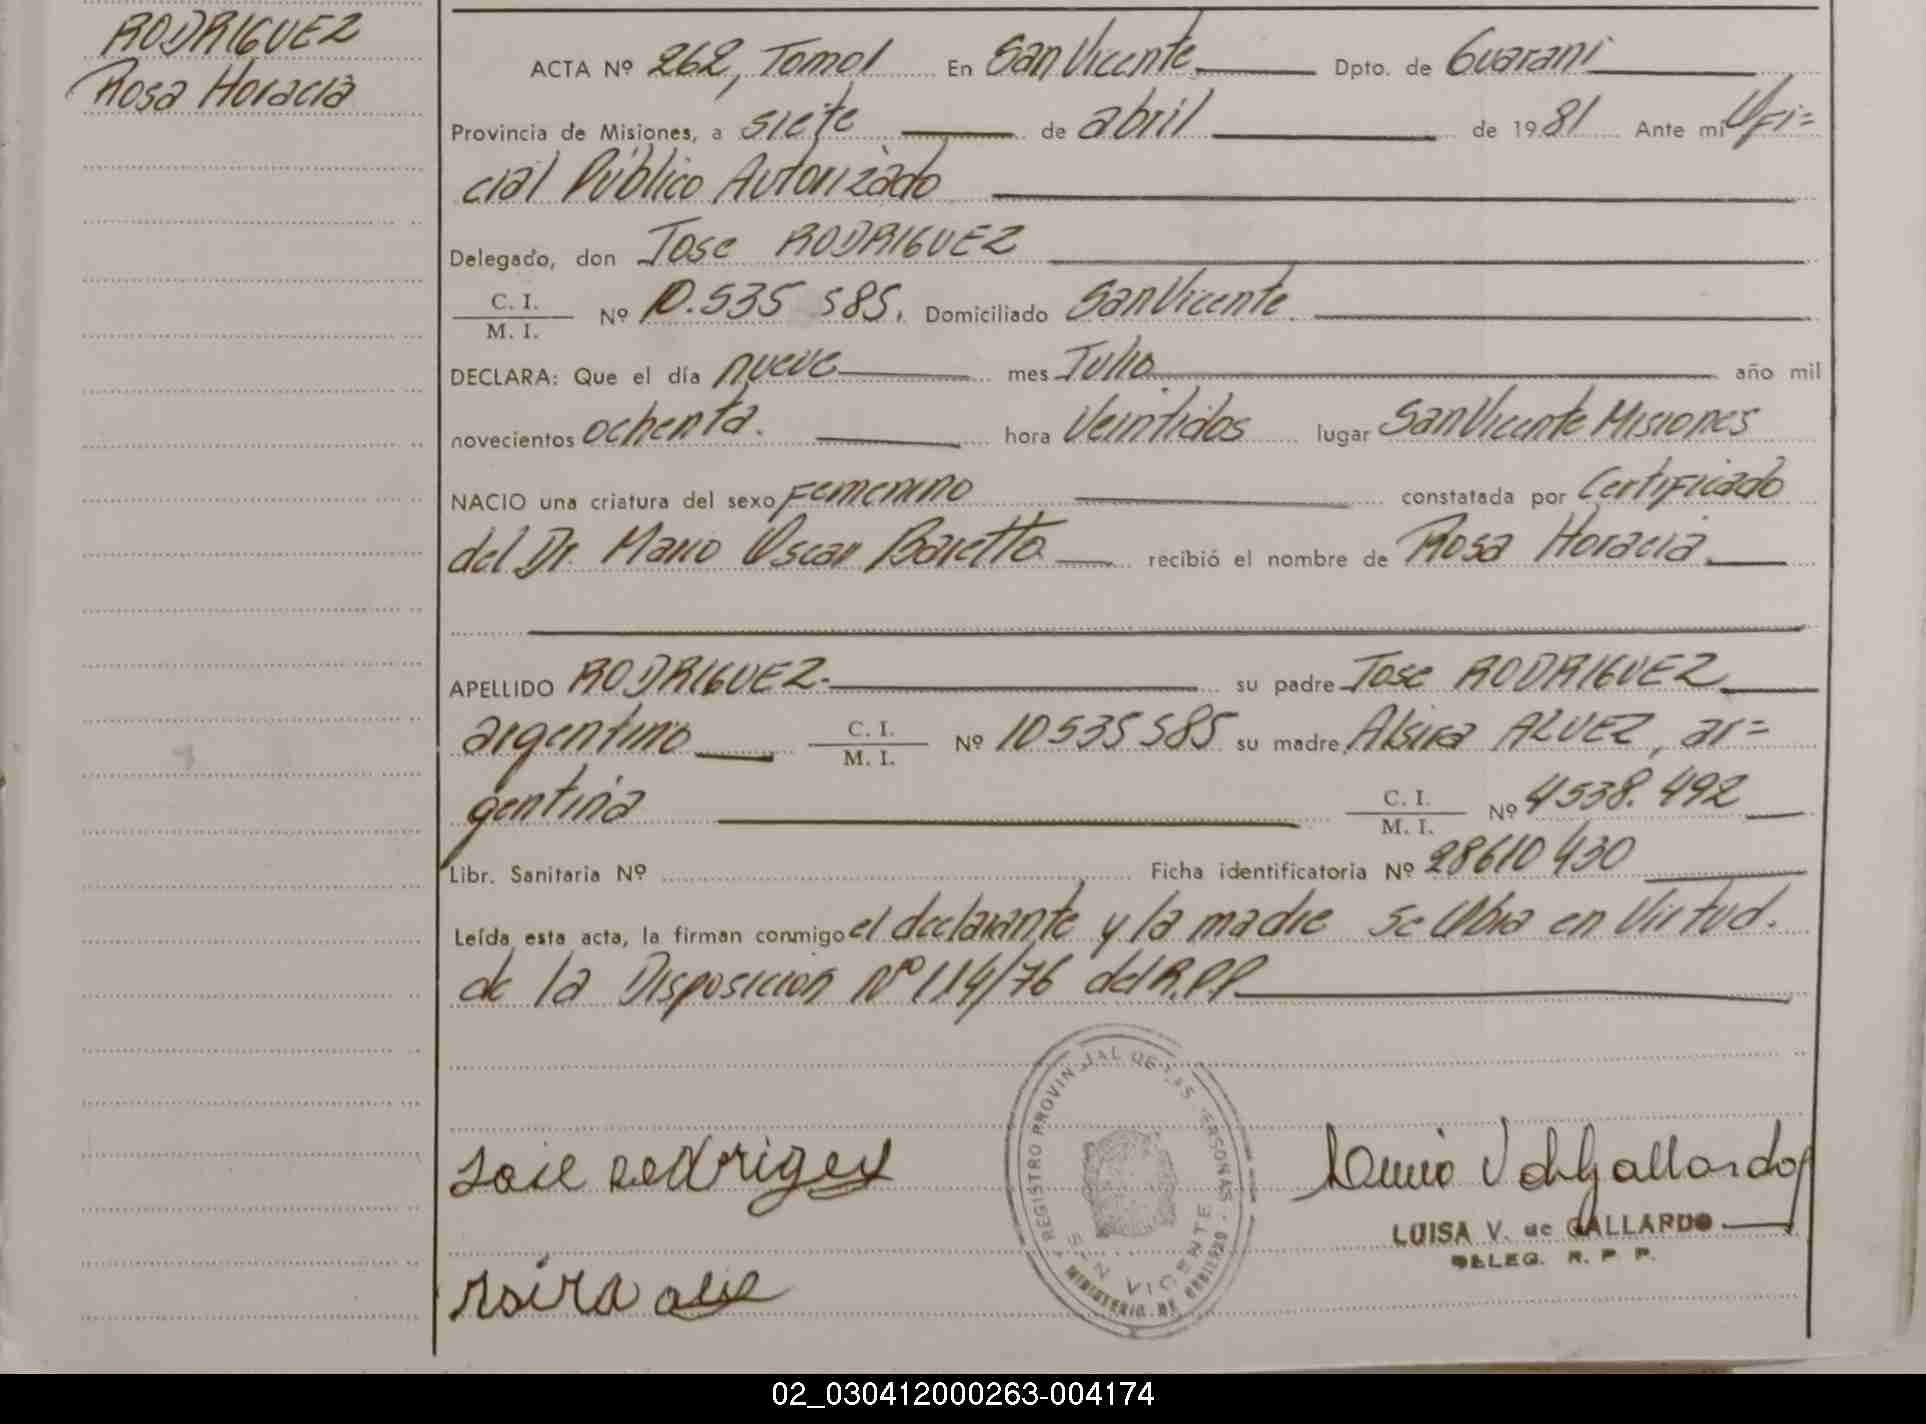 RODRIGUEZ
Rosa Horacia
ACTA Nº 262, Tomo I En San Vicente Dpto. de Guarani
Provincia de Misiones, a siete de abril de 1981 Ante mi Ofi=
cial Público Autorizado
Delegado, don Jose RODRIGUEZ
C. I.
M. I. Nº 10.535 585. Domiciliado San Vicente
DECLARA: Que el día nueve mes Julio año mil
novecientos ochenta. hora Veintidos lugar San Vicente Misiones
NACIO una criatura del sexo Femenino constatada por Certificado
del Dr. Mario Oscar Baretto recibió el nombre de Rosa Horacia
APELLIDO RODRIGUEZ su padre Jose RODRIGUEZ
argentino C. I.
M. I. Nº 10535585 su madre Alsira ALVEZ, ar=
gentina C. I.
M. I. Nº 4538.492
Libr. Sanitaria Nº Ficha identificatoria Nº 28610430
Leída esta acta, la firman conmigo el declarante y la madre Se Obra en Virtud.
de la Disposicion Nº 114/76 del R.P.P.
REGISTRO PROVINCIAL DE LAS PERSONAS
SAN VICENTE
MINISTERIO DE GOBIERNO
LUISA V. de GALLARDO
DELEG. R. P. P.
02_030412000263-004174